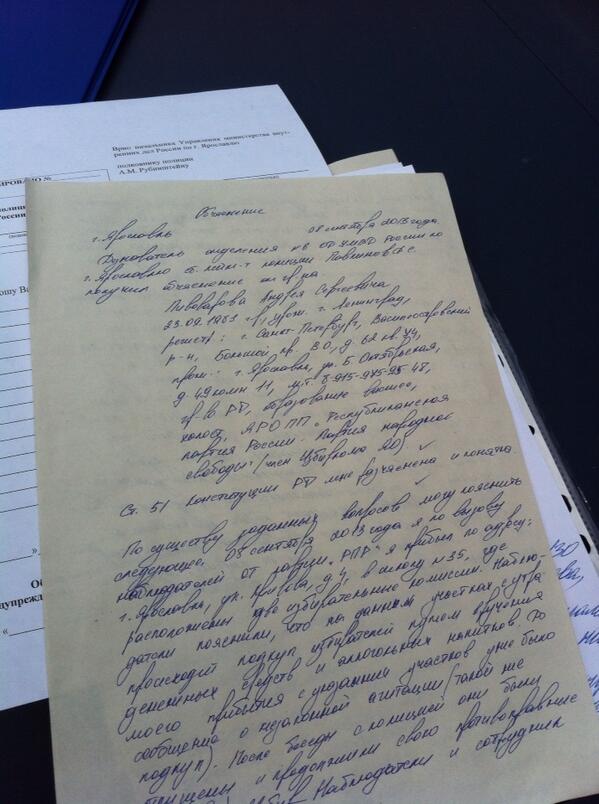 Врио начальника Управления министерства внут-
ренних дел России по г. Ярославлю
полковнику полиции
А.М. Рубинштейну
Объяснение
г. Ярославль 08 сентября 2013 года
отделения УМВД России по
г. Ярославлю ст. лейт-т полиции
получил объяснение от гр-на
Пивоварова Андрея Сергеевича
23.09.1981 г.р., урож. г. Ленинград,
регистр: г. Санкт-Петербург, Василеостровский
р-н, Большой пр. ВО, д. 62 кв. 34,
прож.: г. Ярославль, ул. Б. Октябрьская,
д. 49 комн 11, м.т.
гр-н РФ, образование высшее,
холост, ЯРО ПП "Республиканская
партия России. Партия народной
свободы" (член Избиркома ЯО)
Ст. 51 Конституции РФ мне разъяснена и понятна.
По существу заданных вопросов могу пояснить
следующее, 08 сентября 2013 года я по вызову
наблюдателей от партии "РПР" я прибыл по адресу:
г. Ярославль, ул. д. 4, в школу № 35, где
расположены две избирательные комиссии. Наблю-
датели пояснили, что на данных участках с утра
происходит подкуп избирателей путем вручения
денежных средств и алкогольных напитков. До
моего прибытия с указанных участков уже было
сообщение о незаконной агитации (такой же
подкуп). После беседы с полицией они были
отпущены и продолжили свою противоправную
Наблюдатели и сотрудник